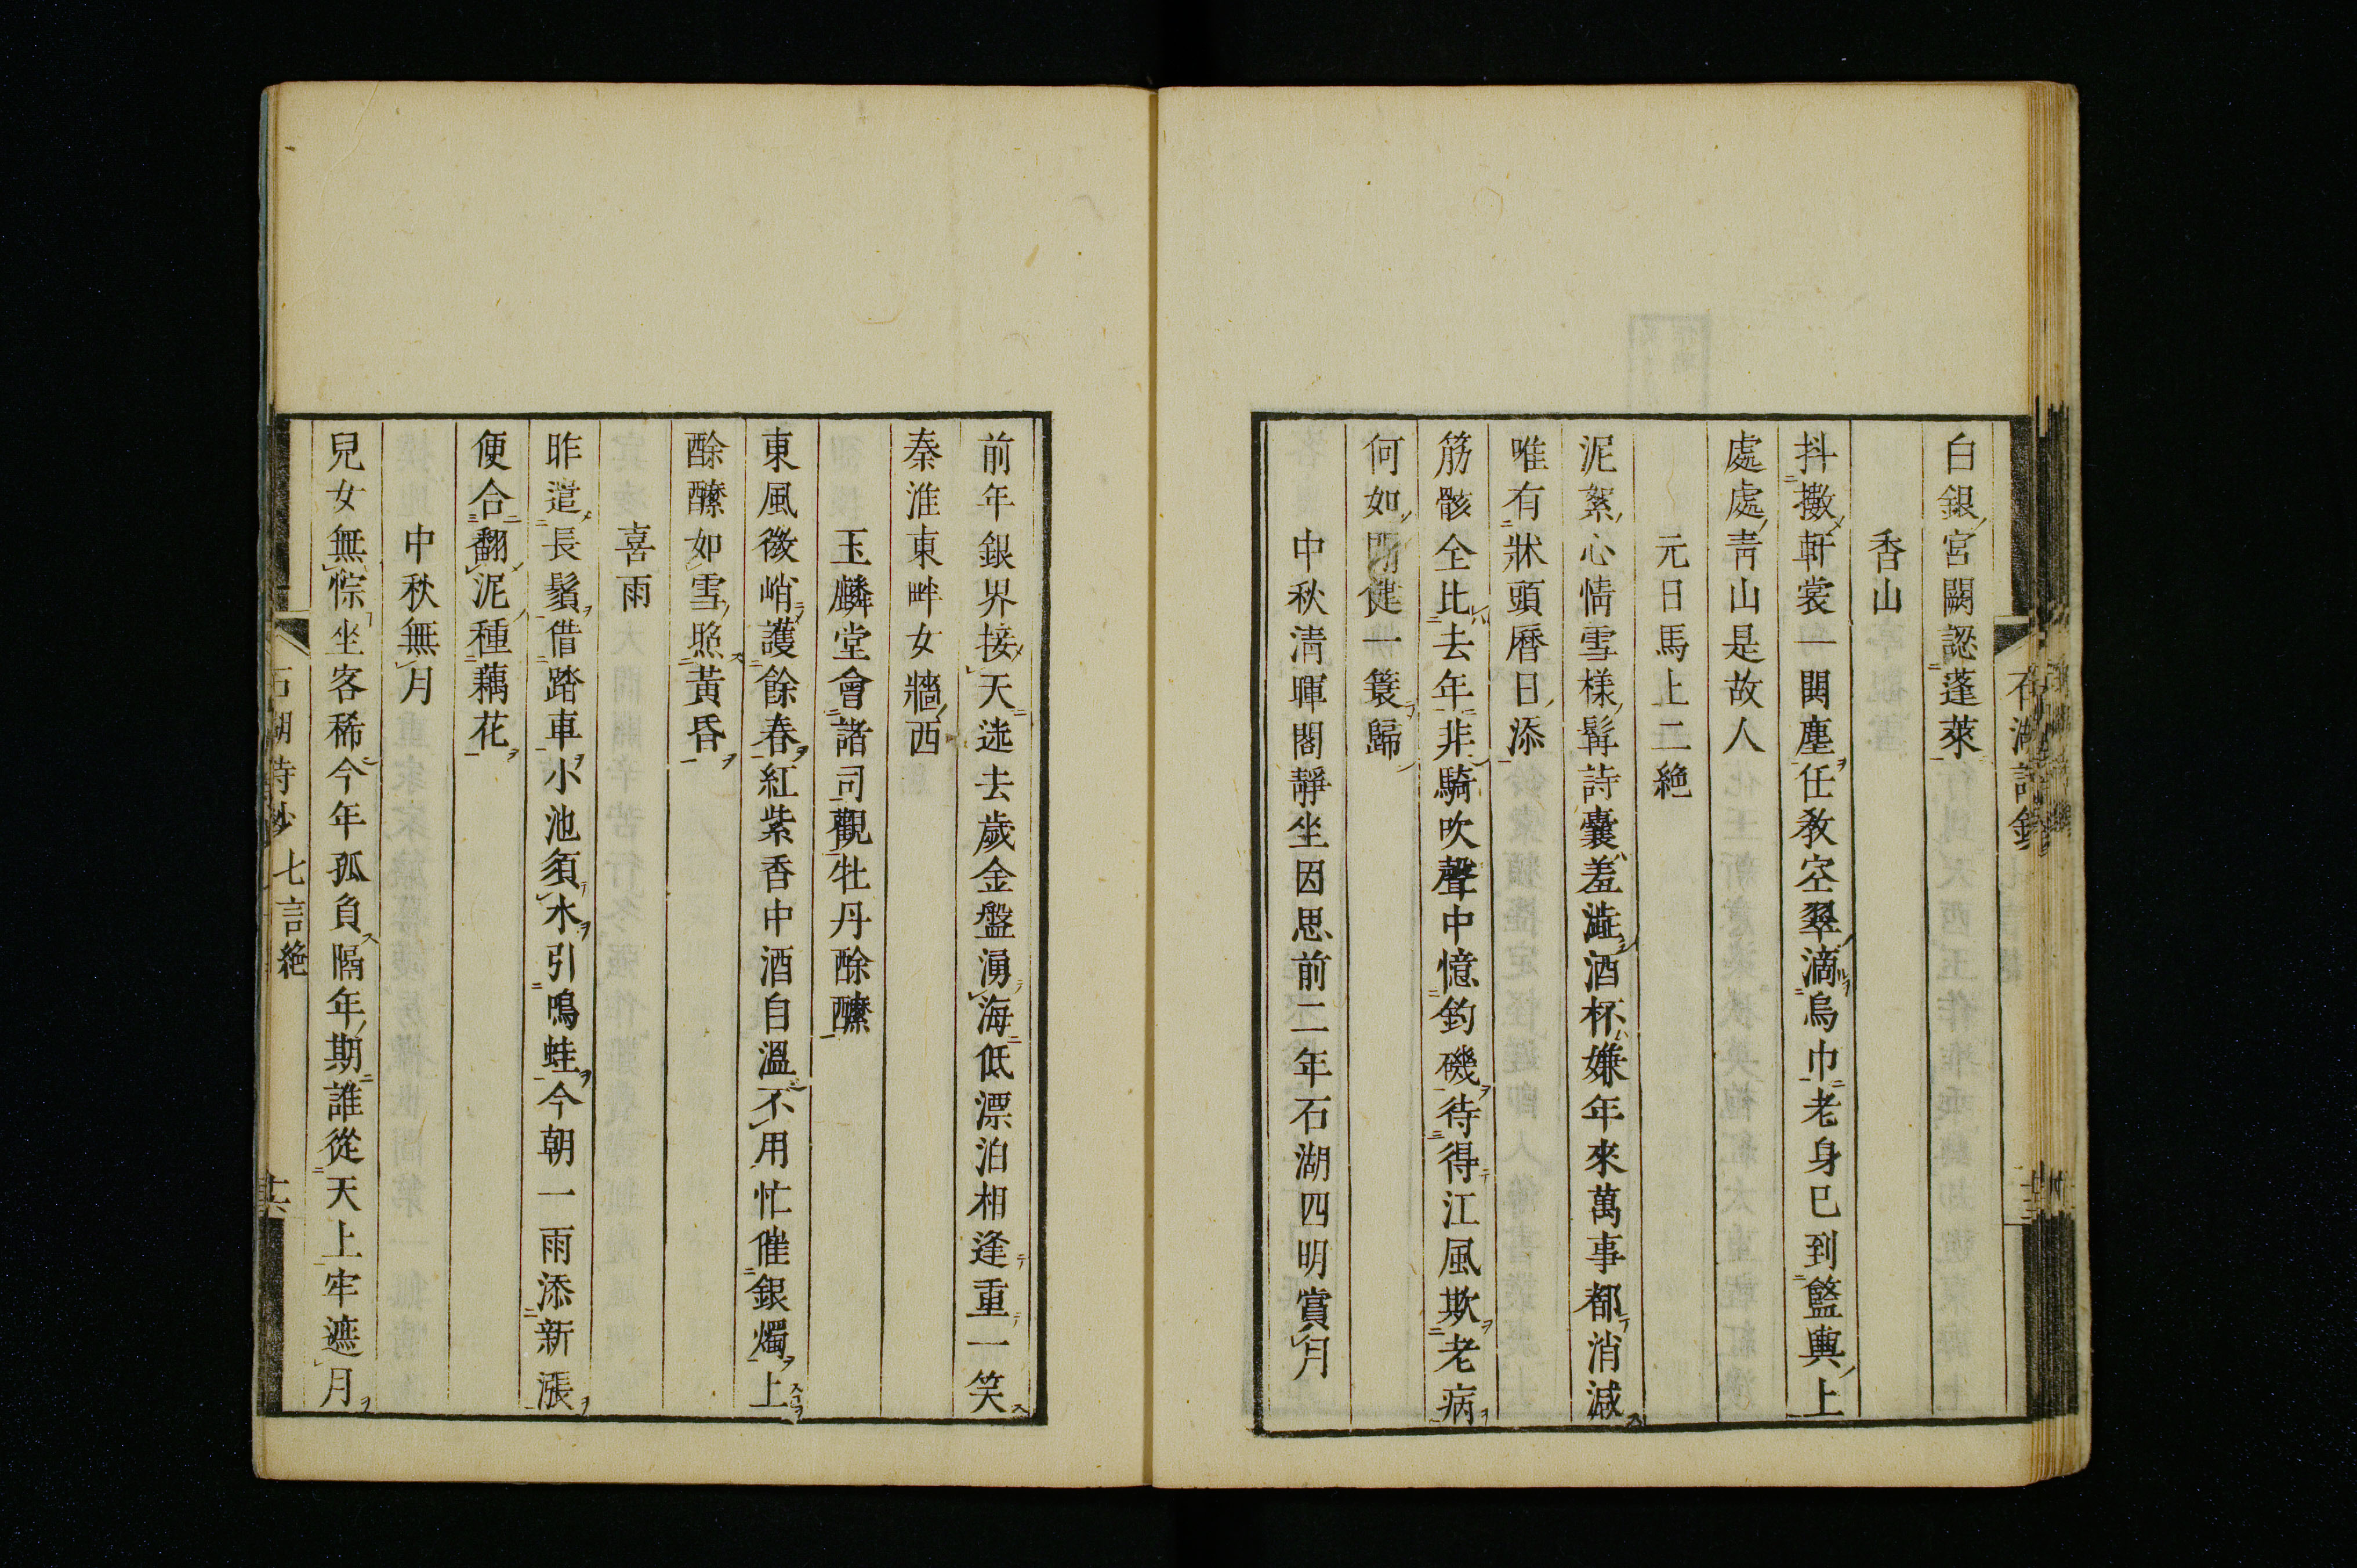 白銀宮闕認蓬萊
香山
抖擻軒裳一閧塵任敎空翠滴烏巾老身已到籃輿上
處處靑山是故人
元日馬上二絶
泥絮心情雪樣髯詩囊羞澁酒杯嫌年來萬事都消減
唯有牀頭曆日添
筋骸全比去年非騎吹聲中憶釣磯待得江風欺老病
何如健一簑歸
中秋淸暉閣靜坐因思前二年石湖四明賞月
前年銀界接天迷去歲金盤湧海低漂泊相逢重一笑
秦淮東畔女牆西
玉麟堂會諸司觀牡丹酴醾
東風微峭護餘春紅紫香中酒自溫不用忙催銀燭上
酴醾如雪照黃昏
喜雨
昨遣長鬚借踏車小池須水引鳴蛙今朝一雨添新漲
便合翻泥種藕花
中秋無月
兒女無悰坐客稀今年孤負隔年期誰從天上牢遮月
石湖詩鈔 七言絶